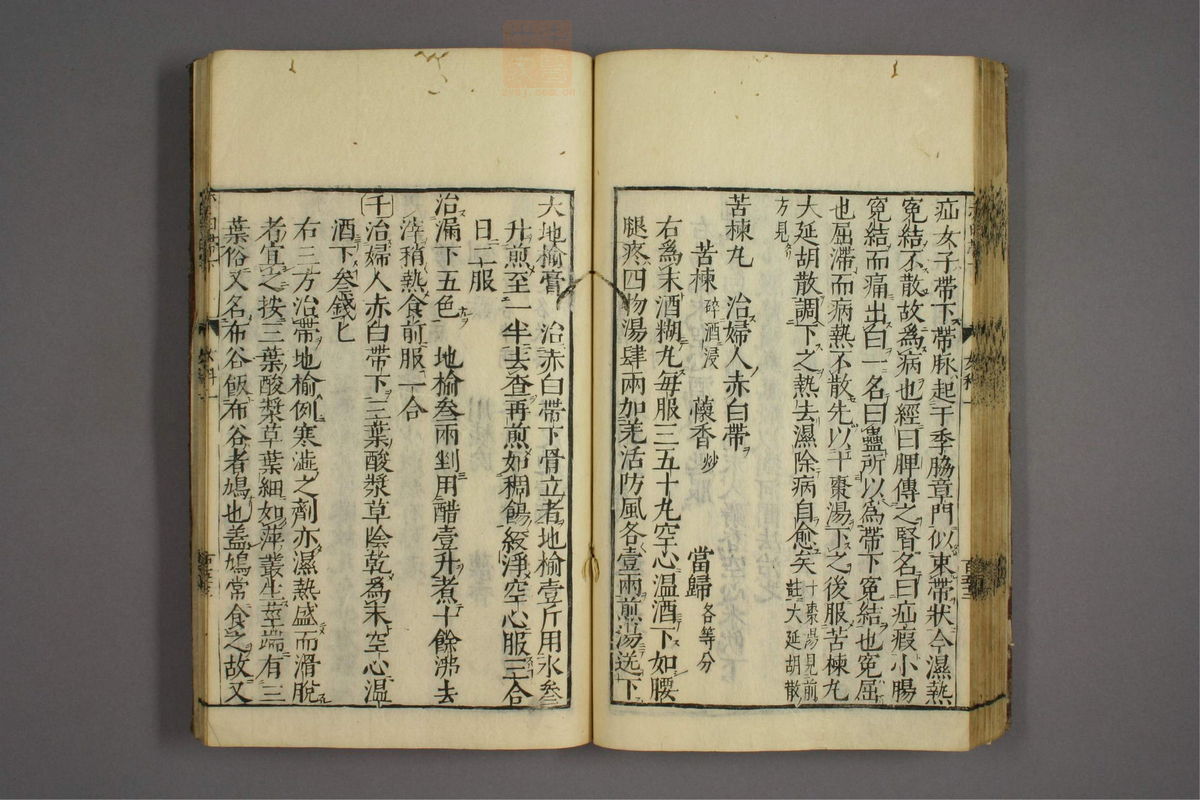 疝女子帶下帶脉起于季脇章門似束帶狀今濕熱
寃結不散故爲病也經曰脾傳之腎名曰疝瘕小腸
寃結而痛出曰一名曰蠱所以爲帶下寃結也寃屈
也屈滯而病熱不散先以十棗湯下之後服苦楝丸
大延胡散調下之熱去濕除病自愈矣十棗湯見前註大延胡散
方見
苦楝丸 治婦人赤白帶
苦楝碎酒浸 蘹香炒 當歸各等分
右爲末酒糊丸每服三五十丸空心温酒下如腰
腿疼四物湯肆兩加羌活防風各壹兩煎湯送下
大地榆膏 治赤白帶下骨立者地榆壹斤用水叁
升煎至一半去查再煎如稠餳絞淨空心服三合
日二服
治漏下五色 地榆叁兩剉用醋壹升煮十餘沸去
滓稍熱食前服一合
千治婦人赤白帶下三葉酸漿草陰乾爲末空心温
酒下叁錢匕
右三方治帶地榆例寒澁之劑亦濕熱盛而滑脫
者宜之按三葉酸漿草葉細如萍叢生莖端有三
葉俗又名布谷飯布谷者鳩也盖鳩常食之故又